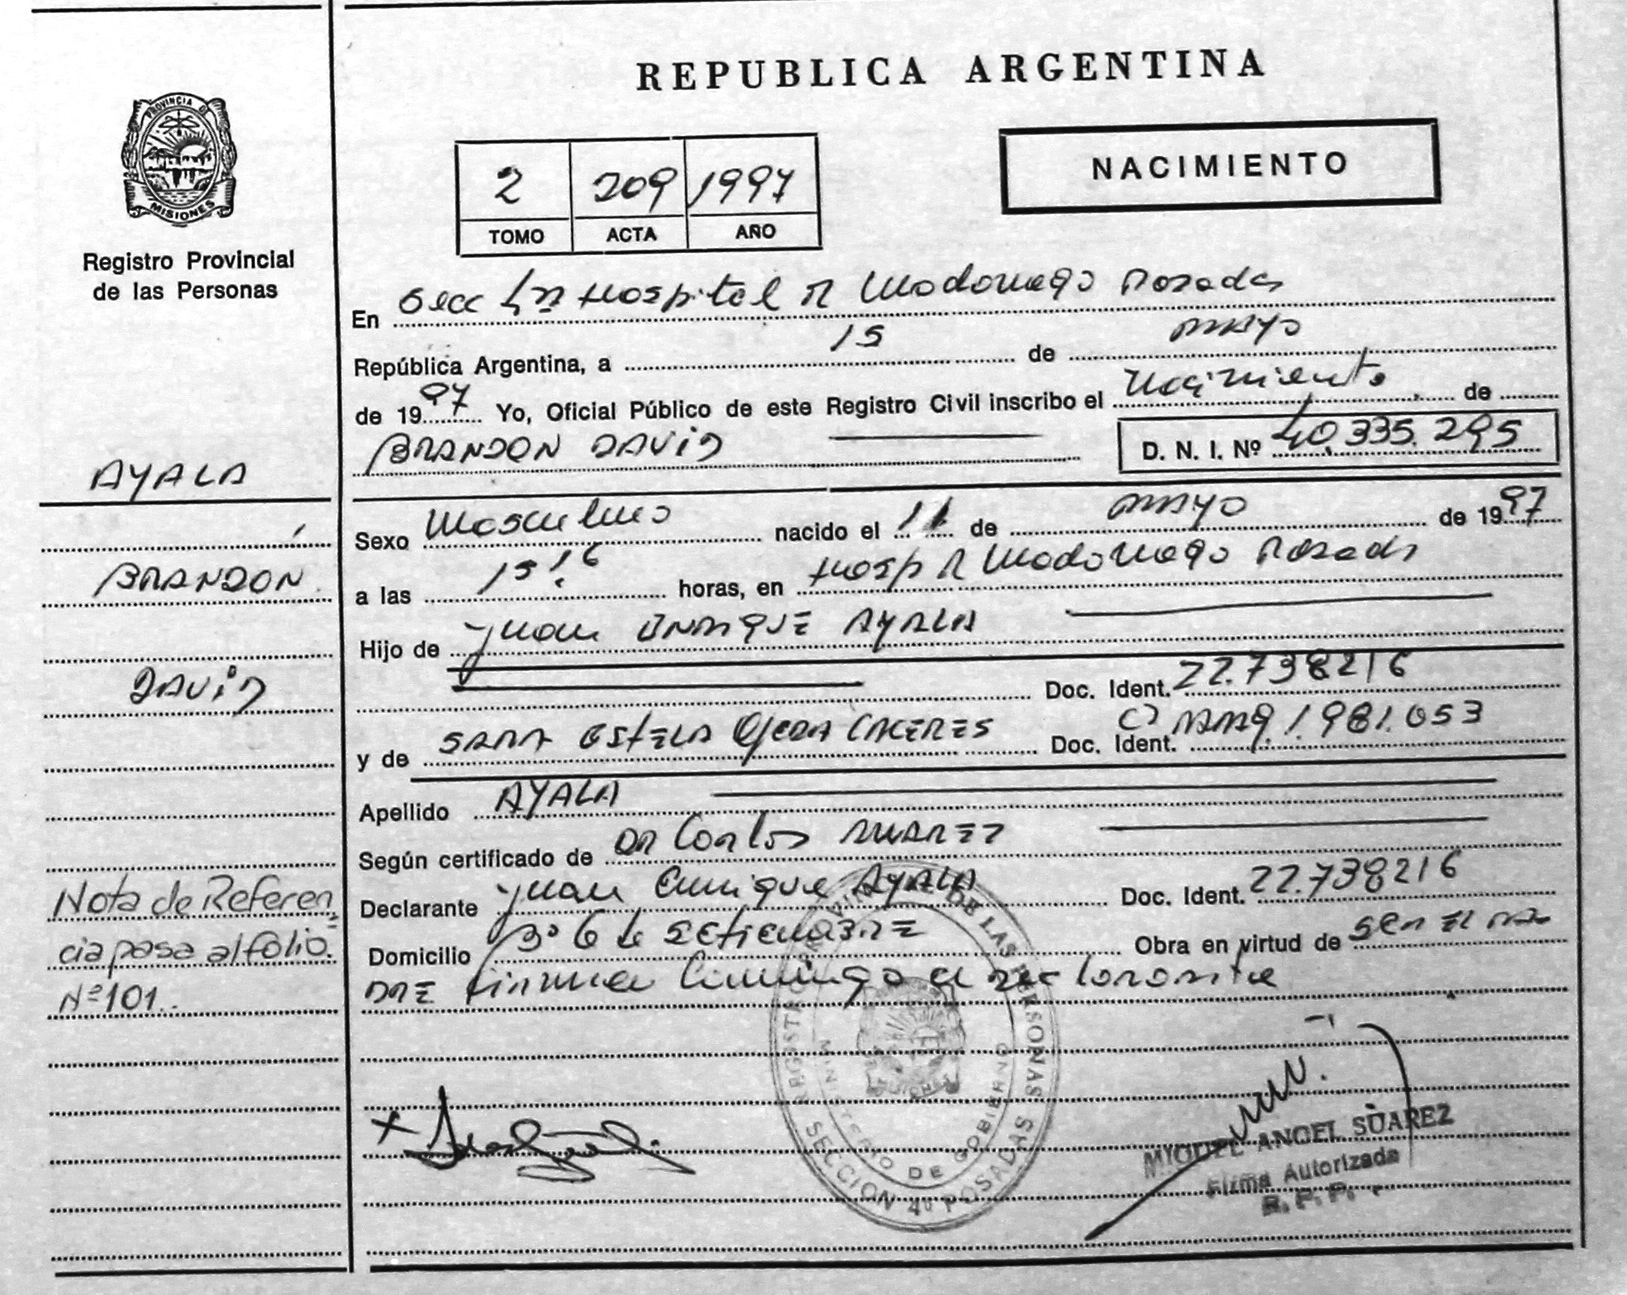 PROVINCIA D
MISIONES
Registro Provincial
de las Personas
AYALA
BRANDON
DAVID
Nota de Referen
cia pasa al folio.
Nº 101.
REPUBLICA ARGENTINA
2 209 1997
TOMO ACTA AÑO
NACIMIENTO
En Secc 4ta Hospital R Madariaga Posadas
República Argentina, a 15 de MAYO
de 1997 Yo, Oficial Público de este Registro Civil inscribo el Nacimiento de
BRANDON DAVID D. N. I. Nº 40.335.295
Sexo Masculino nacido el 11 de MAYO de 1997
a las 15:16 horas, en Hosp R Madariaga Posadas
Hijo de Juan ENRIQUE AYALA
Doc. Ident. 22.738216
y de SARA ESTELA OJEDA CACERES Doc. Ident. 1.981.053
Apellido AYALA
Según certificado de DR Carlos SUAREZ
Declarante Juan Enrique AYALA Doc. Ident. 22.738216
Domicilio Bº 6 de SETIEMBRE Obra en virtud de SER EL PA
DRE firma conmigo el acta
REGISTRO PROVINCIAL DE LAS PERSONAS
MINISTERIO DE GOBIERNO
SECCION 4º POSADAS
MIGUEL ANGEL SUAREZ
Firma Autorizada
R. P. P.